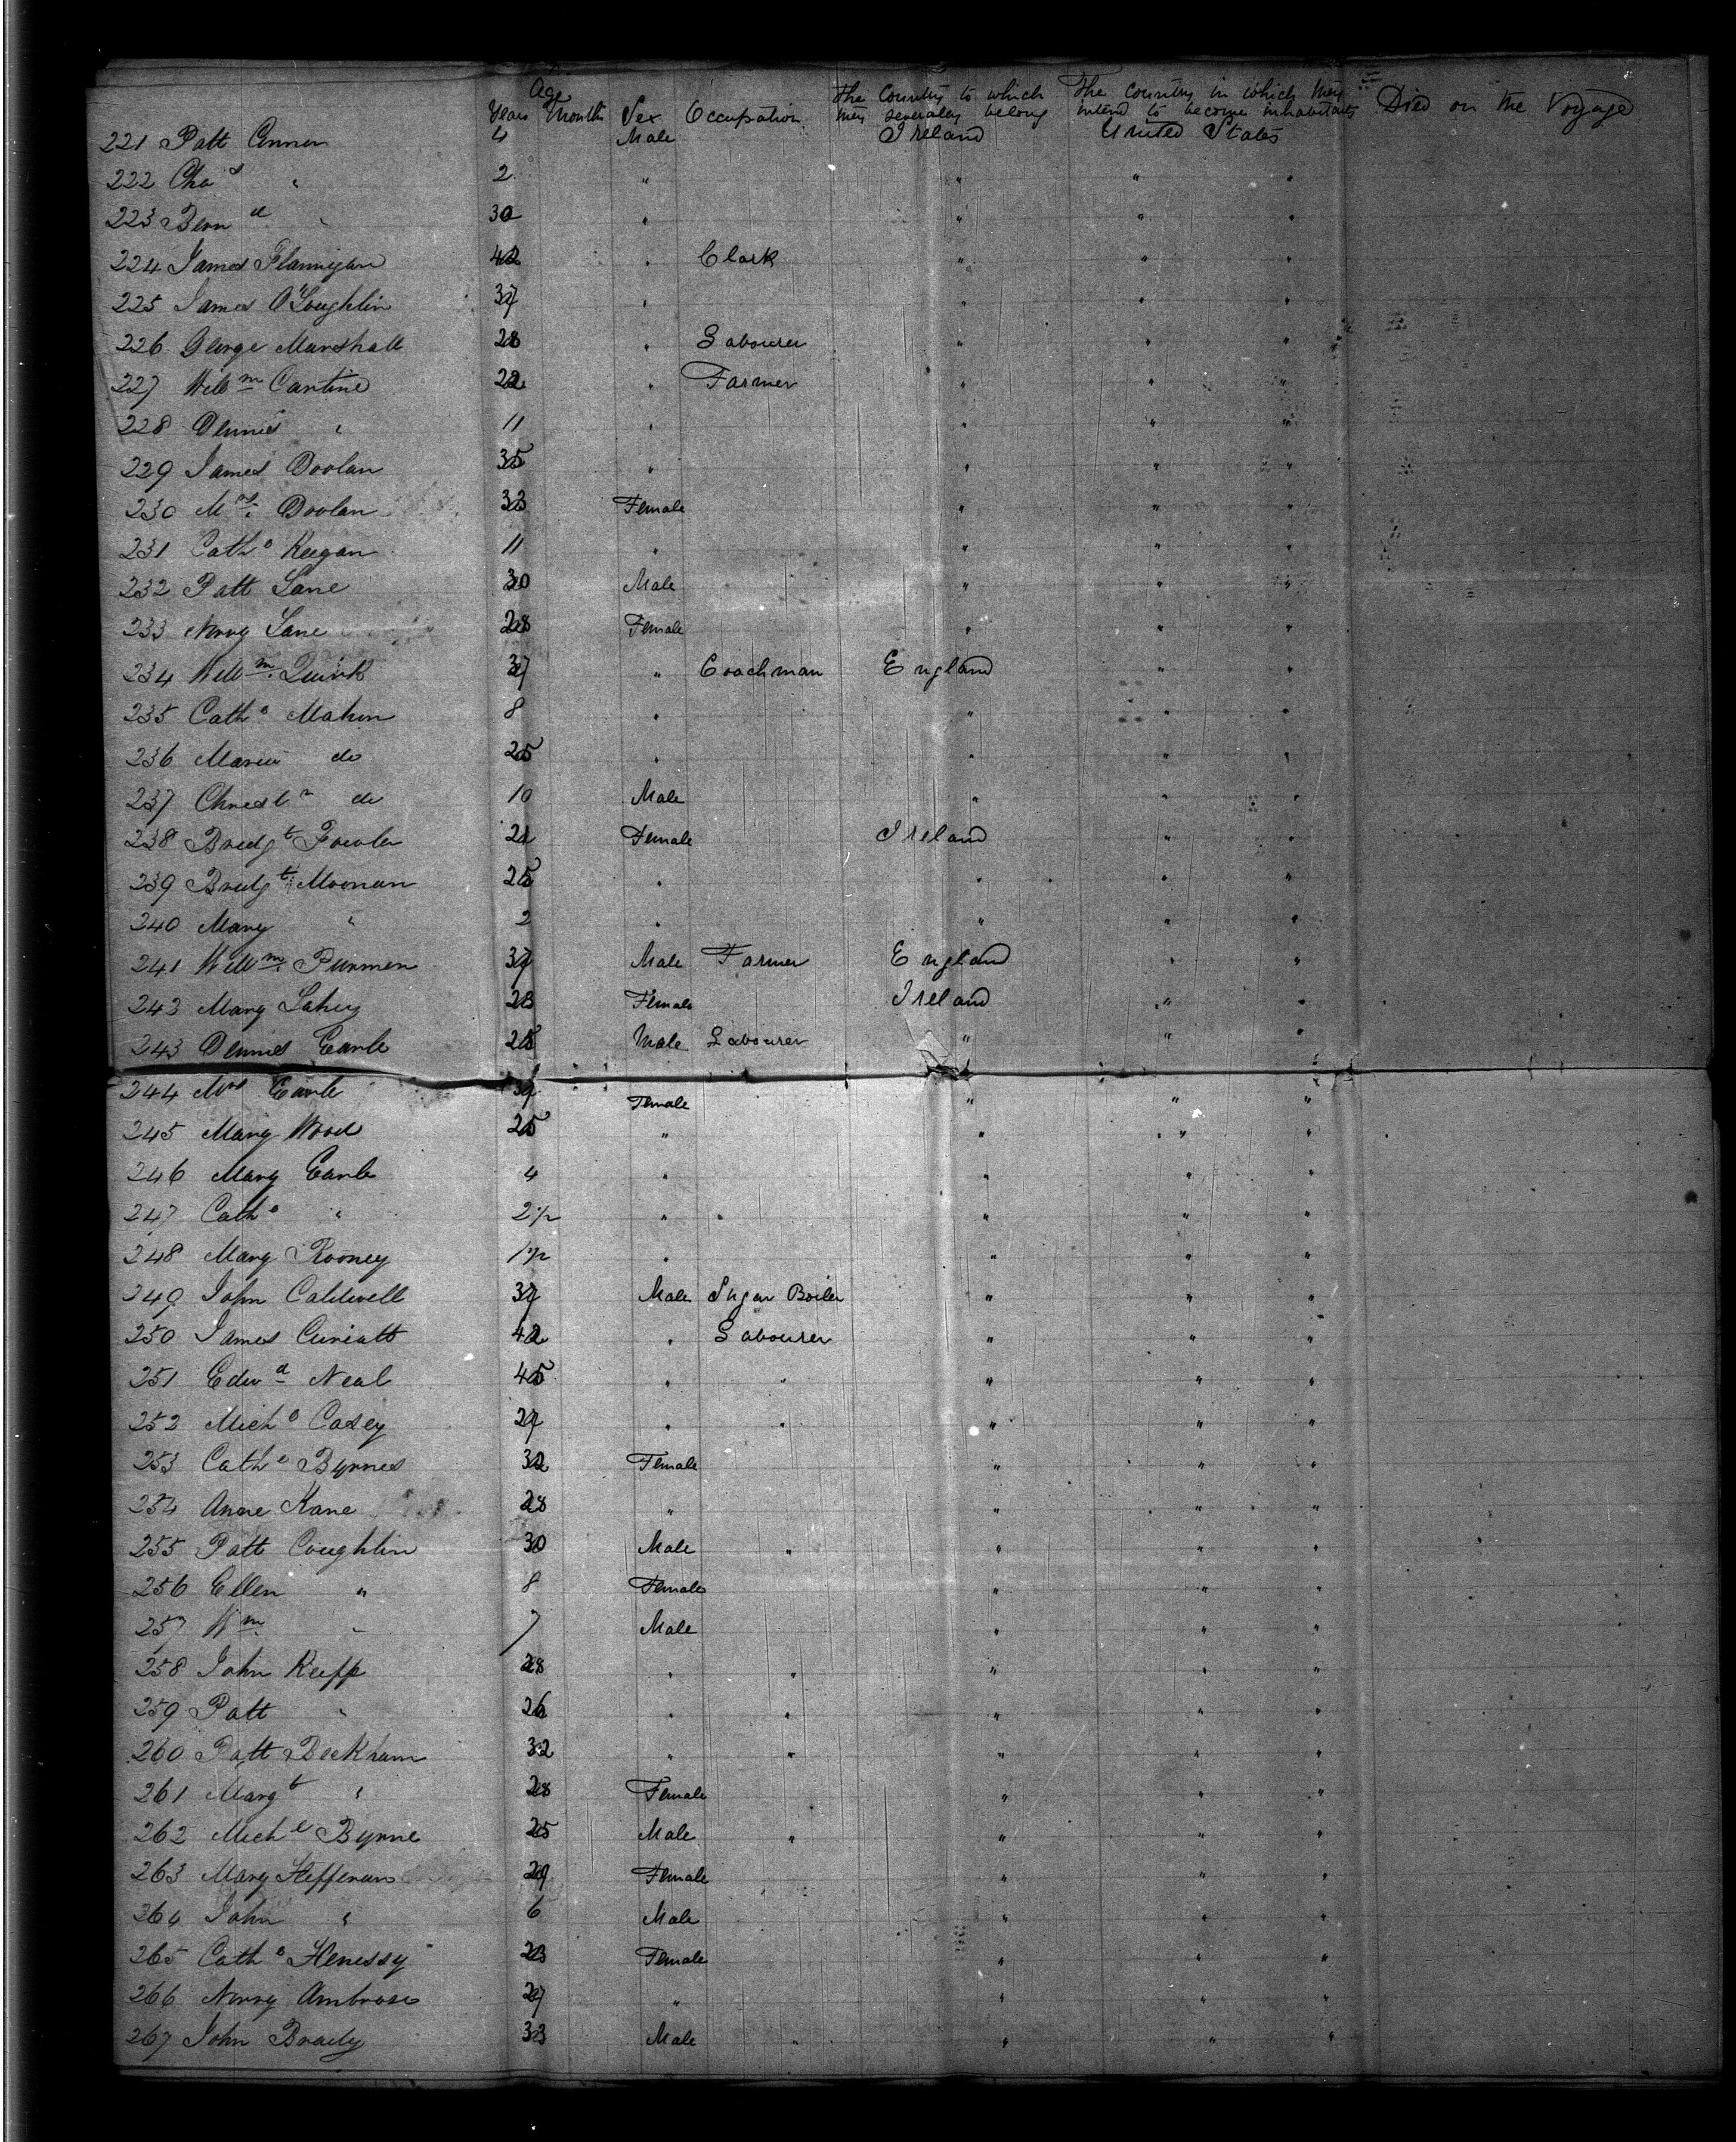 Age
Years Months Sex Occupation The Country to which they severally belong The country in which they intend to become inhabitants Died on the Voyage
221 Patt Connor 4 Male Ireland United States
222 Cha s " 2 " " " "
223 Bern d " 30 " " " "
224 James Flannigan 42 " Clark " " "
225 James O'Loughlin 37 " " " "
226 George Marshall 28 " Labourer " " "
227 Will m Cantine 22 " Farmer " " "
228 Dennis " 11 " " " "
229 James Doolan 35 " " " "
230 Mrs. Doolan 33 Female " " "
231 Cath e Keegan 11 " " " "
232 Patt Lane 30 Male " " "
233 Norry Lane 28 Female " " "
234 Will m. Quirk 37 " Coachman England " "
235 Cath e Mahon 8 " " " "
236 Maria do 25 " " " "
237 Christ r do 10 Male " " "
238 Bridg t Fowler 21 Female Ireland " "
239 Bridg t Moonan 25 " " " "
240 Mary " 2 " " " "
241 Will m. Purmen 37 Male Farmer England " "
242 Mary Lahey 23 Female Ireland " "
243 Dennis Earle 25 Male Labourer " " "
244 Mrs Earle 39 Female " " "
245 Mary Wood 25 " " " "
246 Mary Earle 4 " " " "
247 Cath e " 2 1/2 " " " "
248 Mary Rooney 1 1/2 " " " "
249 John Caldwell 37 Male Sugar Boiler " " "
250 James Curiatt 42 " Labourer " " "
251 Edw d Neal 45 " " " " "
252 Mich l Casey 27 " " " " "
253 Cath e Byrnes 32 Female " " "
254 Anne Kane 28 " " " "
255 Patt Coughlin 30 Male " " " "
256 Ellen " 8 Female " " "
257 W m. " 7 Male " " "
258 John Keiff 28 " " " " "
259 Patt " 26 " " " " "
260 Patt Beckham 32 " " " " "
261 Marg t " 28 Female " " "
262 Mich l Byrne 25 Male " " " "
263 Mary Heffernan 29 Female " " "
264 John " 6 Male " " "
265 Cath e Henessy 23 Female " " "
266 Norry Ambrose 27 " " " "
267 John Brady 33 Male " " " "